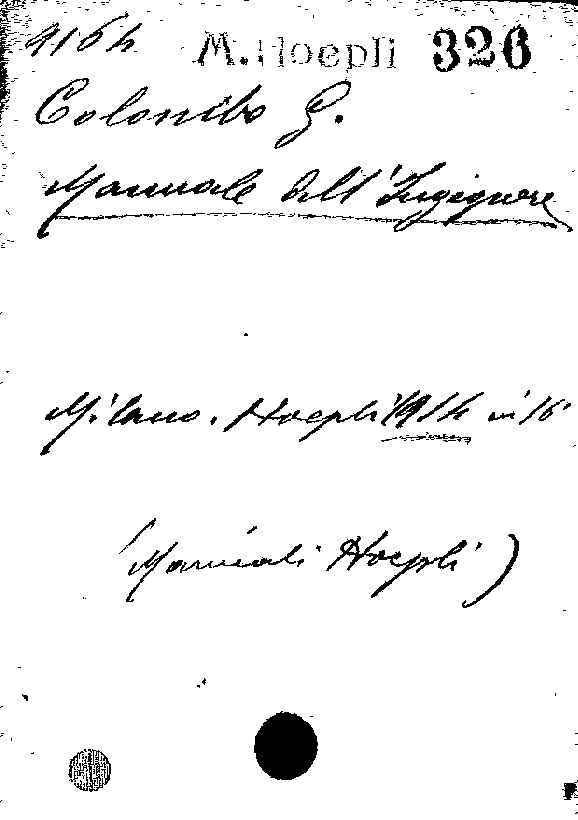 4164 M. Hoepli 326
Colombo G.
Manuale dell'Ingegnere
Milano. Hoepli 1914 in 16°
(Manuali Hoepli)